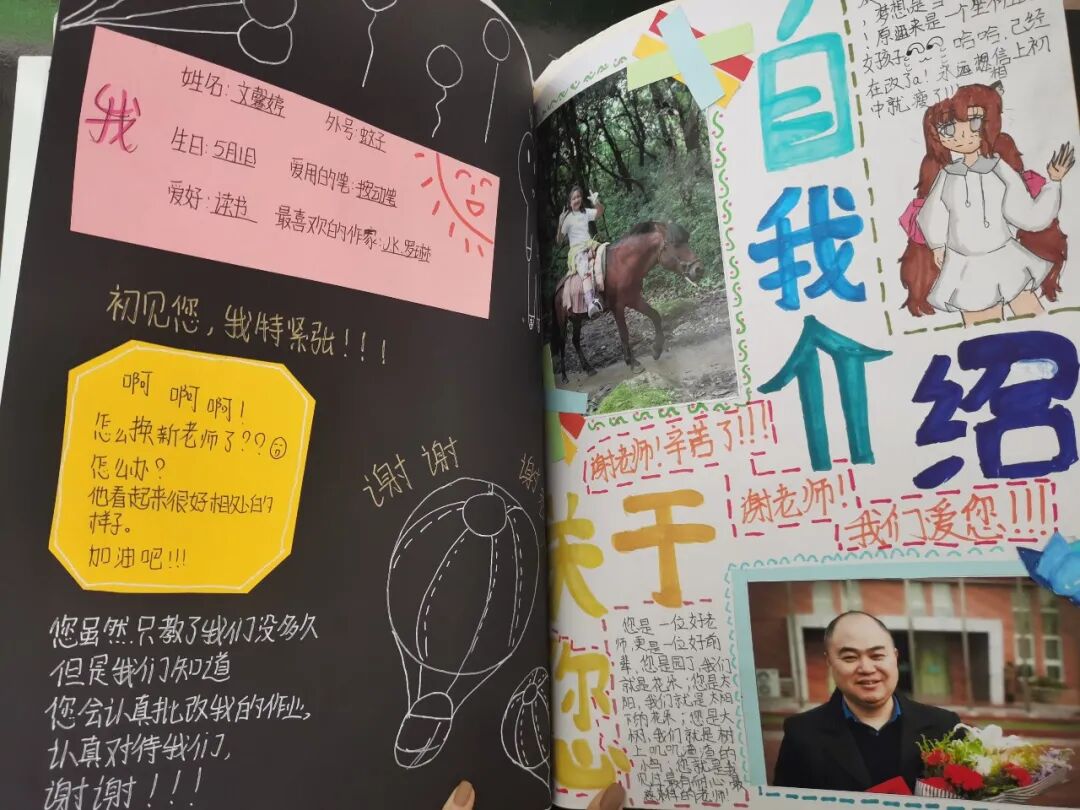 我
姓名: 文馨婷
外号: 蚊子
生日: 5月1日
爱用的笔: 按动笔
爱好: 读书
最喜欢的作家: J.K.罗琳
初见您，我特紧张！！！
啊 啊啊！
怎么换新老师了？？
怎么办？
他看起来很好相处的
样子。
加油吧!!!
谢谢
谢
您虽然只教了我们没多久
但是我们知道
您会认真批改我的作业，
认真对待我们，
谢谢！！！
自我介绍
梦想是当
原画来是一个
女孩子 哈哈，已经
在改了a！永远相信上初
中就瘦了!!
谢老师！辛苦了!!!
谢老师！
我们爱您!!!
关于您
您是一位好老
师，更是一位好前
辈，您是园丁，我们
就是花朵；您是太
阳，我们就是太阳
下的花朵；您是大
树，我们就是树
上叽叽喳喳的
小鸟，您就是我
见过最有耐心最
慈祥的老师！